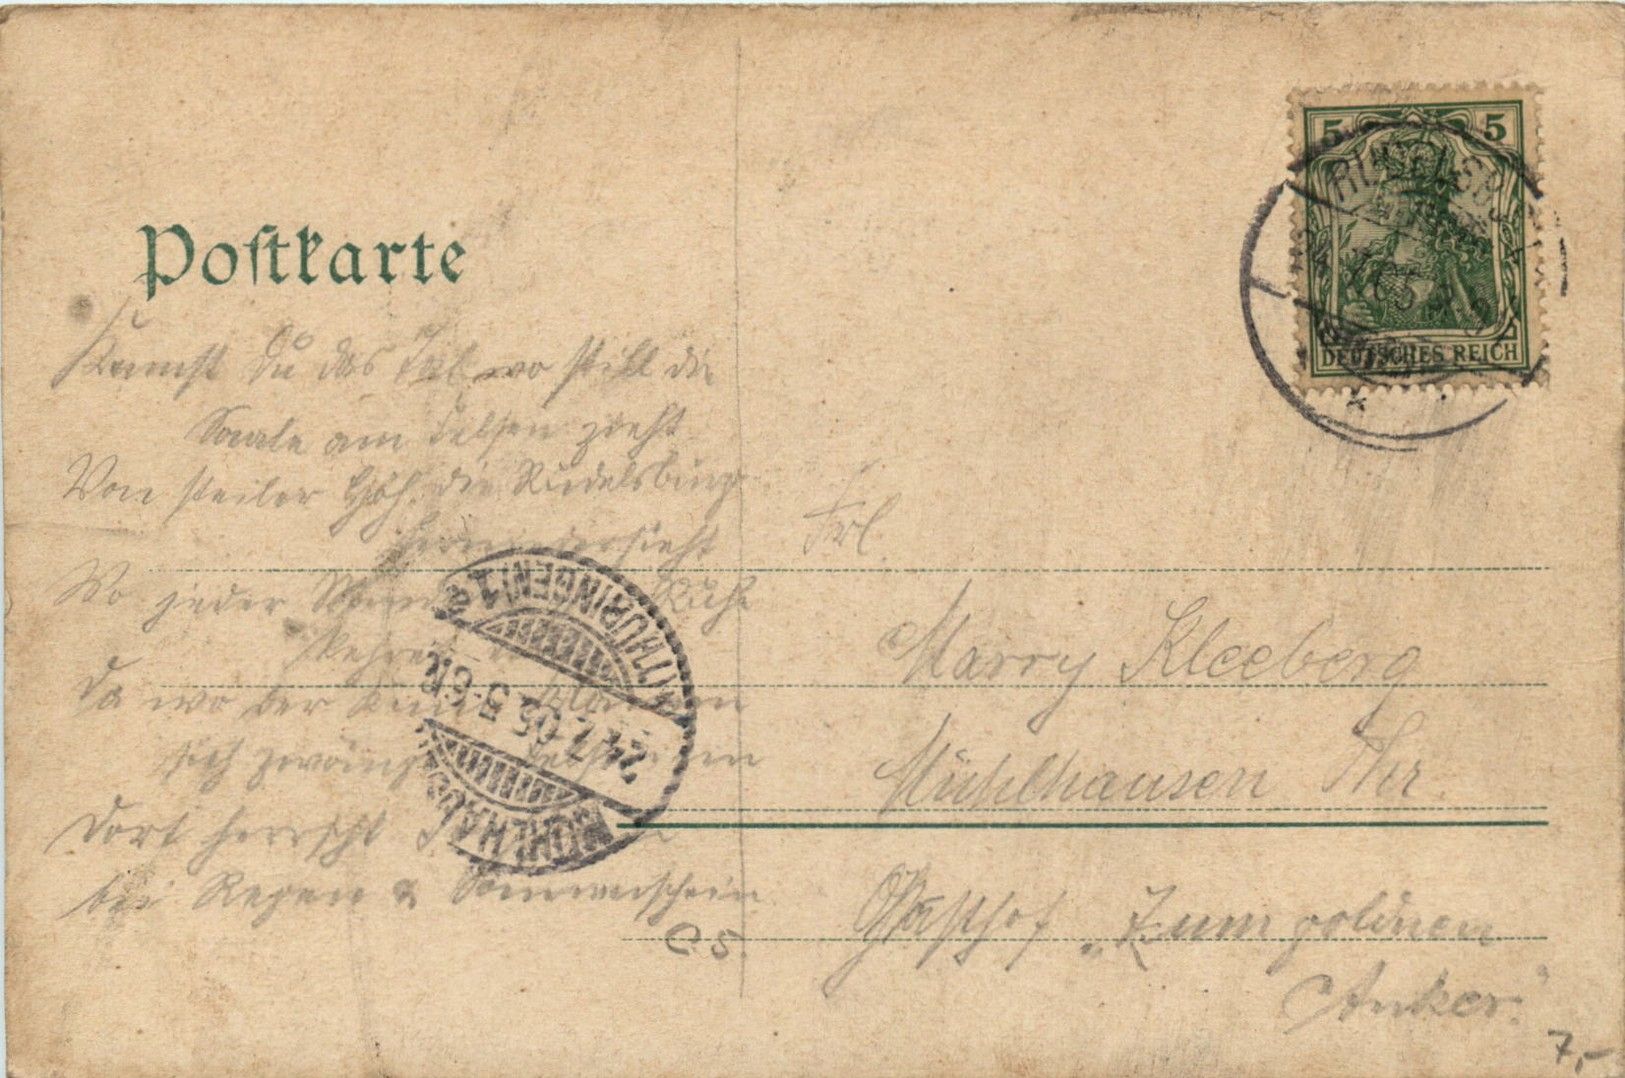 Postkarte
5 5
DEUTSCHES REICH
24.7.05
Kennst Du das Tal wo still die
Saale am Felsen zieht
Von steiler Höh. die Rudelsburg
herniedersieht
Wo jeder
Da wo der
sich zwängt
Dort herrscht
bei Regen & Sonnenschein
C. S.
MÜHLHAUSEN (THÜRINGEN) 1
24.7.05 5-6N
Frl.
Marry Kleeberg
Mühlhausen Thr.
Gasthof „Zum goldnen
Anker."
7,-